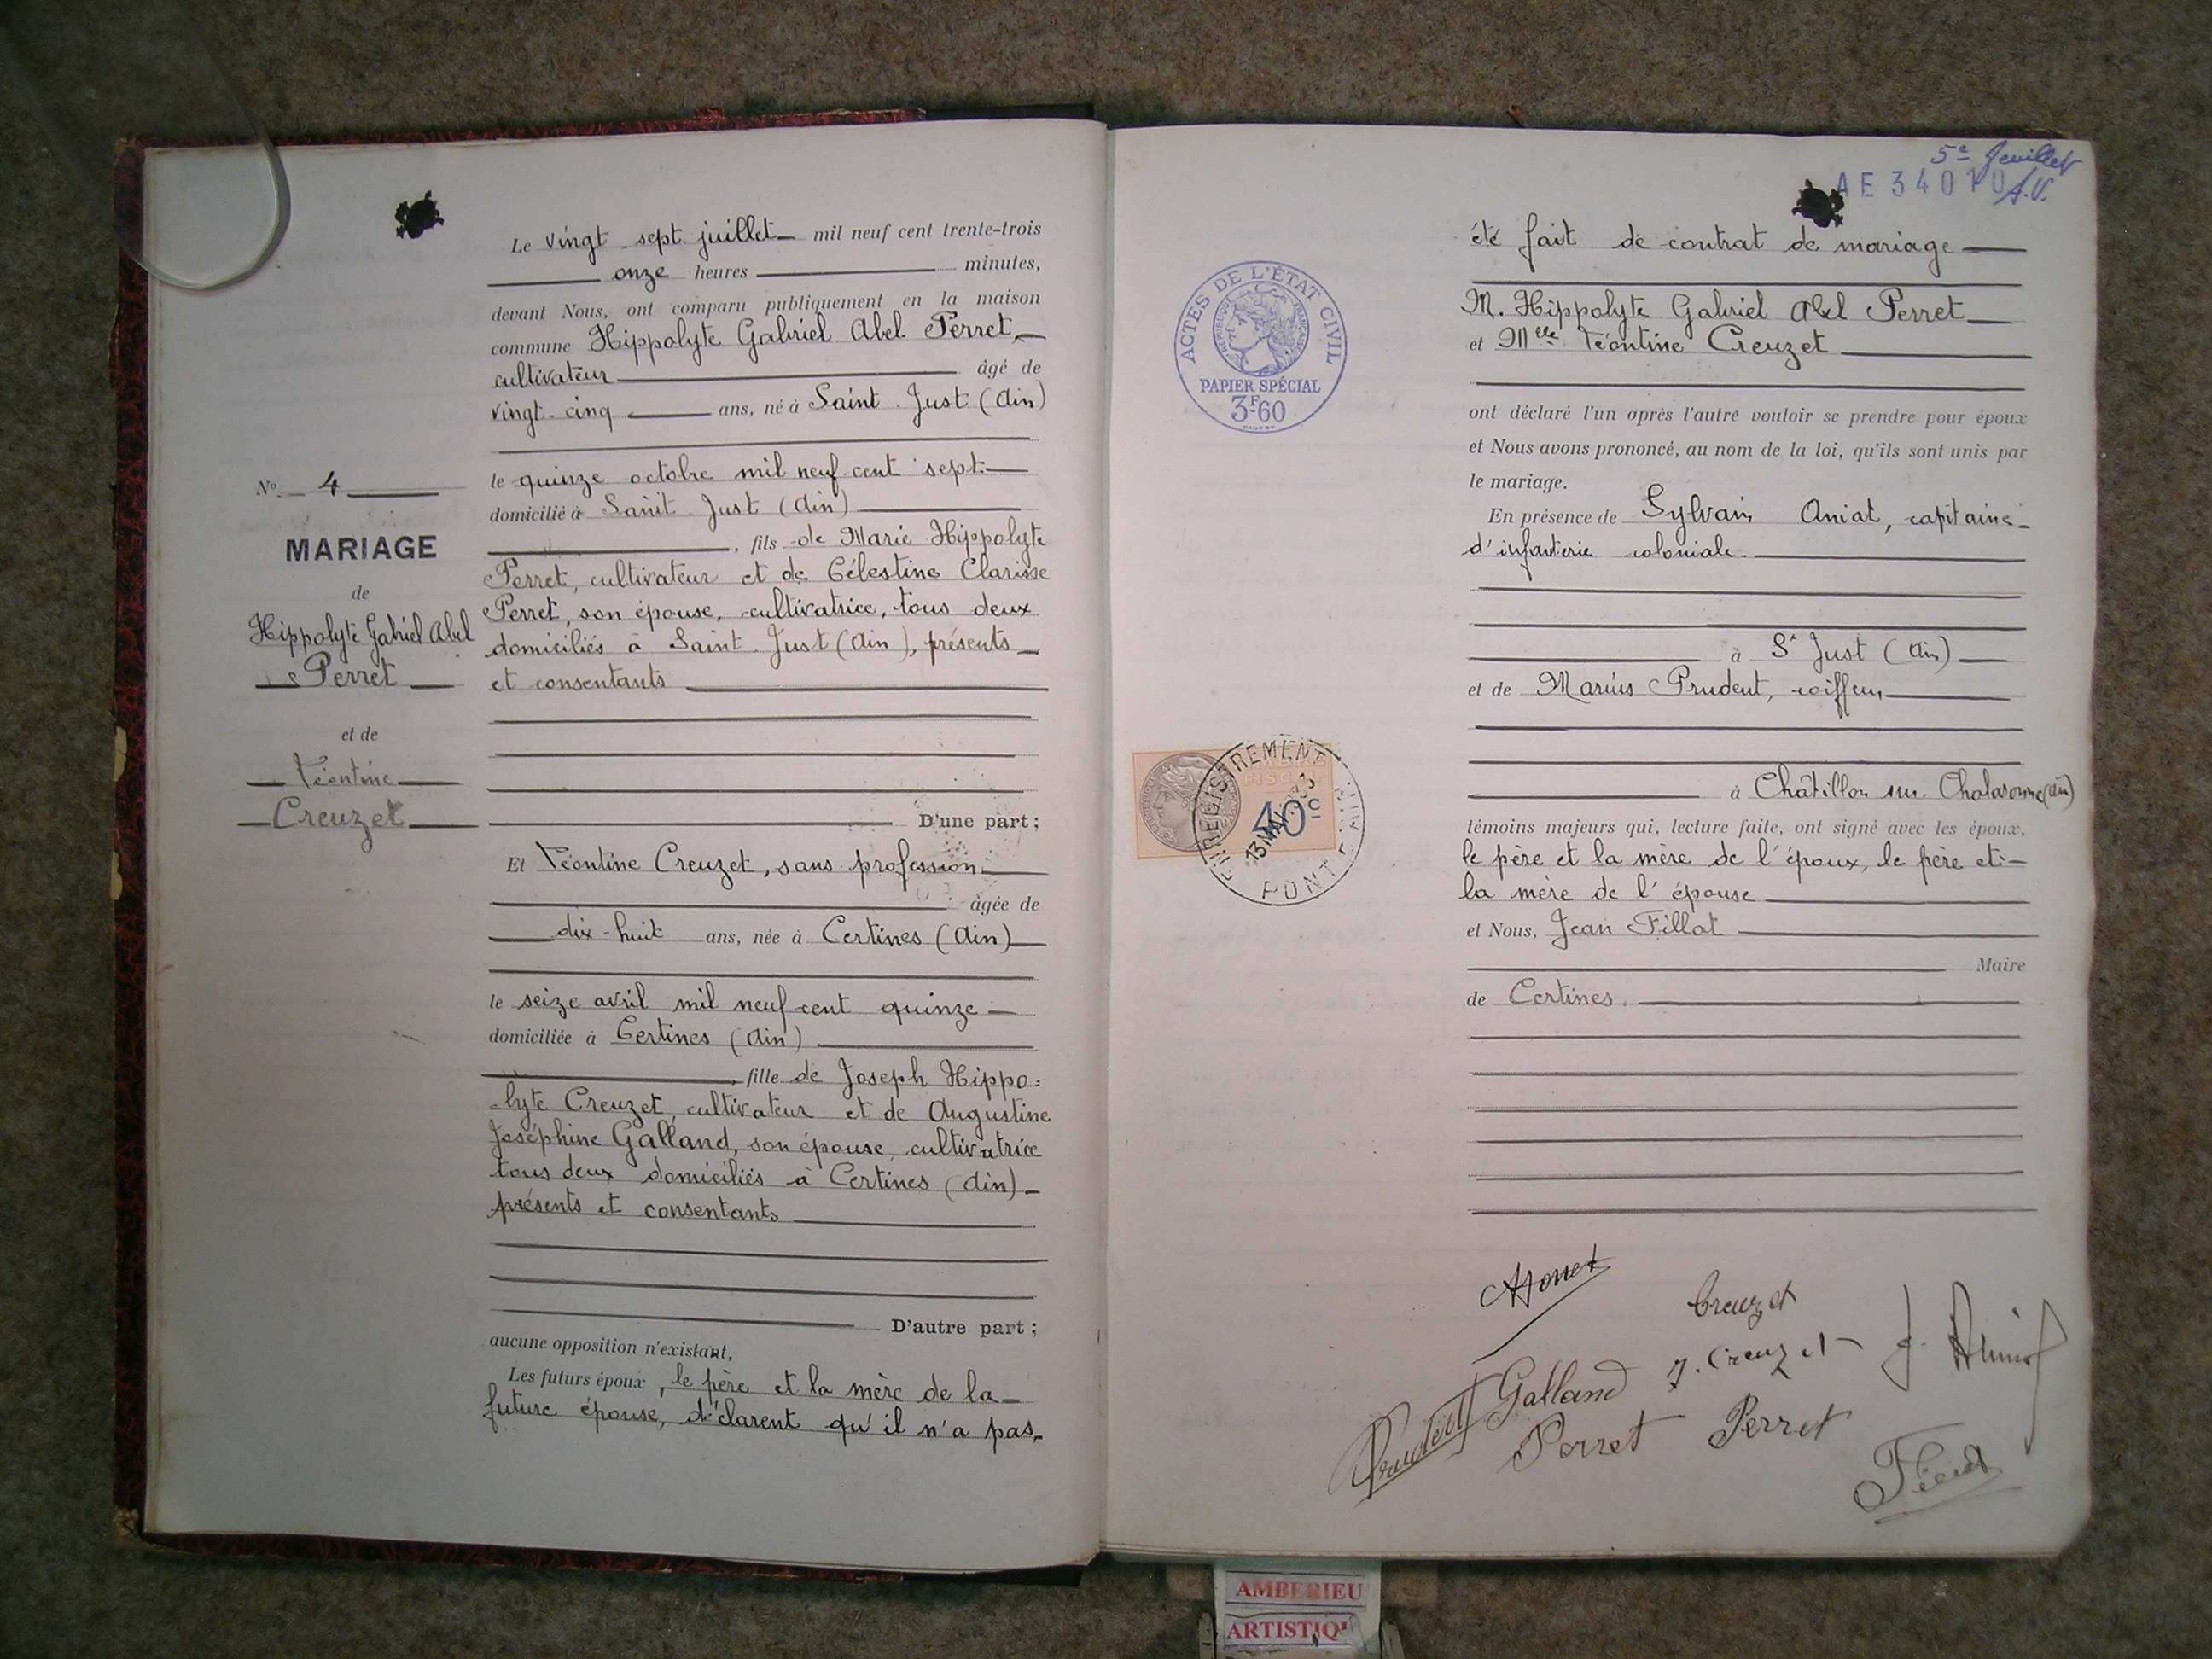 Le vingt sept juillet mil neuf cent trente-trois
onze heures minutes,
devant Nous, ont comparu publiquement en la maison
commune Hippolyte Gabriel Abel Perret,
cultivateur âgé de
vingt-cinq ans, né à Saint-Just (Ain)
le quinze octobre mil neuf cent sept
domicilié à Saint-Just (Ain)
, fils de Marie Hippolyte
Perret, cultivateur et de Célestine Clarisse
Perret, son épouse, cultivatrice, tous deux
domiciliés à Saint-Just (Ain), présents
et consentants
D'une part;
Et Léontine Creuzet, sans profession
âgée de
dix-huit ans, née à Certines (Ain)
le seize avril mil neuf cent quinze
domiciliée à Certines (Ain)
, fille de Joseph Hippo=
=lyte Creuzet, cultivateur et de Augustine
Joséphine Galland, son épouse, cultivatrice
tous deux domiciliés à Certines (Ain)
présents et consentants
D'autre part;
aucune opposition n'existant,
Les futurs époux, le père et la mère de la
future épouse, déclarent qu'il n'a pas
No. 4
MARIAGE
de
Hippolyte Gabriel Abel
Perret
et de
Léontine
Creuzet
5e feuillet
A.V.
AE 34010
été fait de contrat de mariage
M. Hippolyte Gabriel Abel Perret
et Melle Léontine Creuzet
ont déclaré l'un après l'autre vouloir se prendre pour époux
et Nous avons prononcé, au nom de la loi, qu'ils sont unis par
le mariage.
En présence de Sylvain Aniat, capitaine
d'infanterie coloniale.
à St Just (Ain)
et de Marius Prudent, coiffeur
à Châtillon sur Chalaronne (Ain)
témoins majeurs qui, lecture faite, ont signé avec les époux,
le père et la mère de l'époux, le père et
la mère de l'épouse
et Nous, Jean Fillot
Maire
de Certines.
ACTES DE L'ÉTAT CIVIL
RÉPUBLIQUE FRANÇAISE
PAPIER SPÉCIAL
3F60
40c
13 MAI
Creuzet
J. Creuzet
Galland
Prudent
Perret
Perret
AMBERIEU
ARTISTIQU